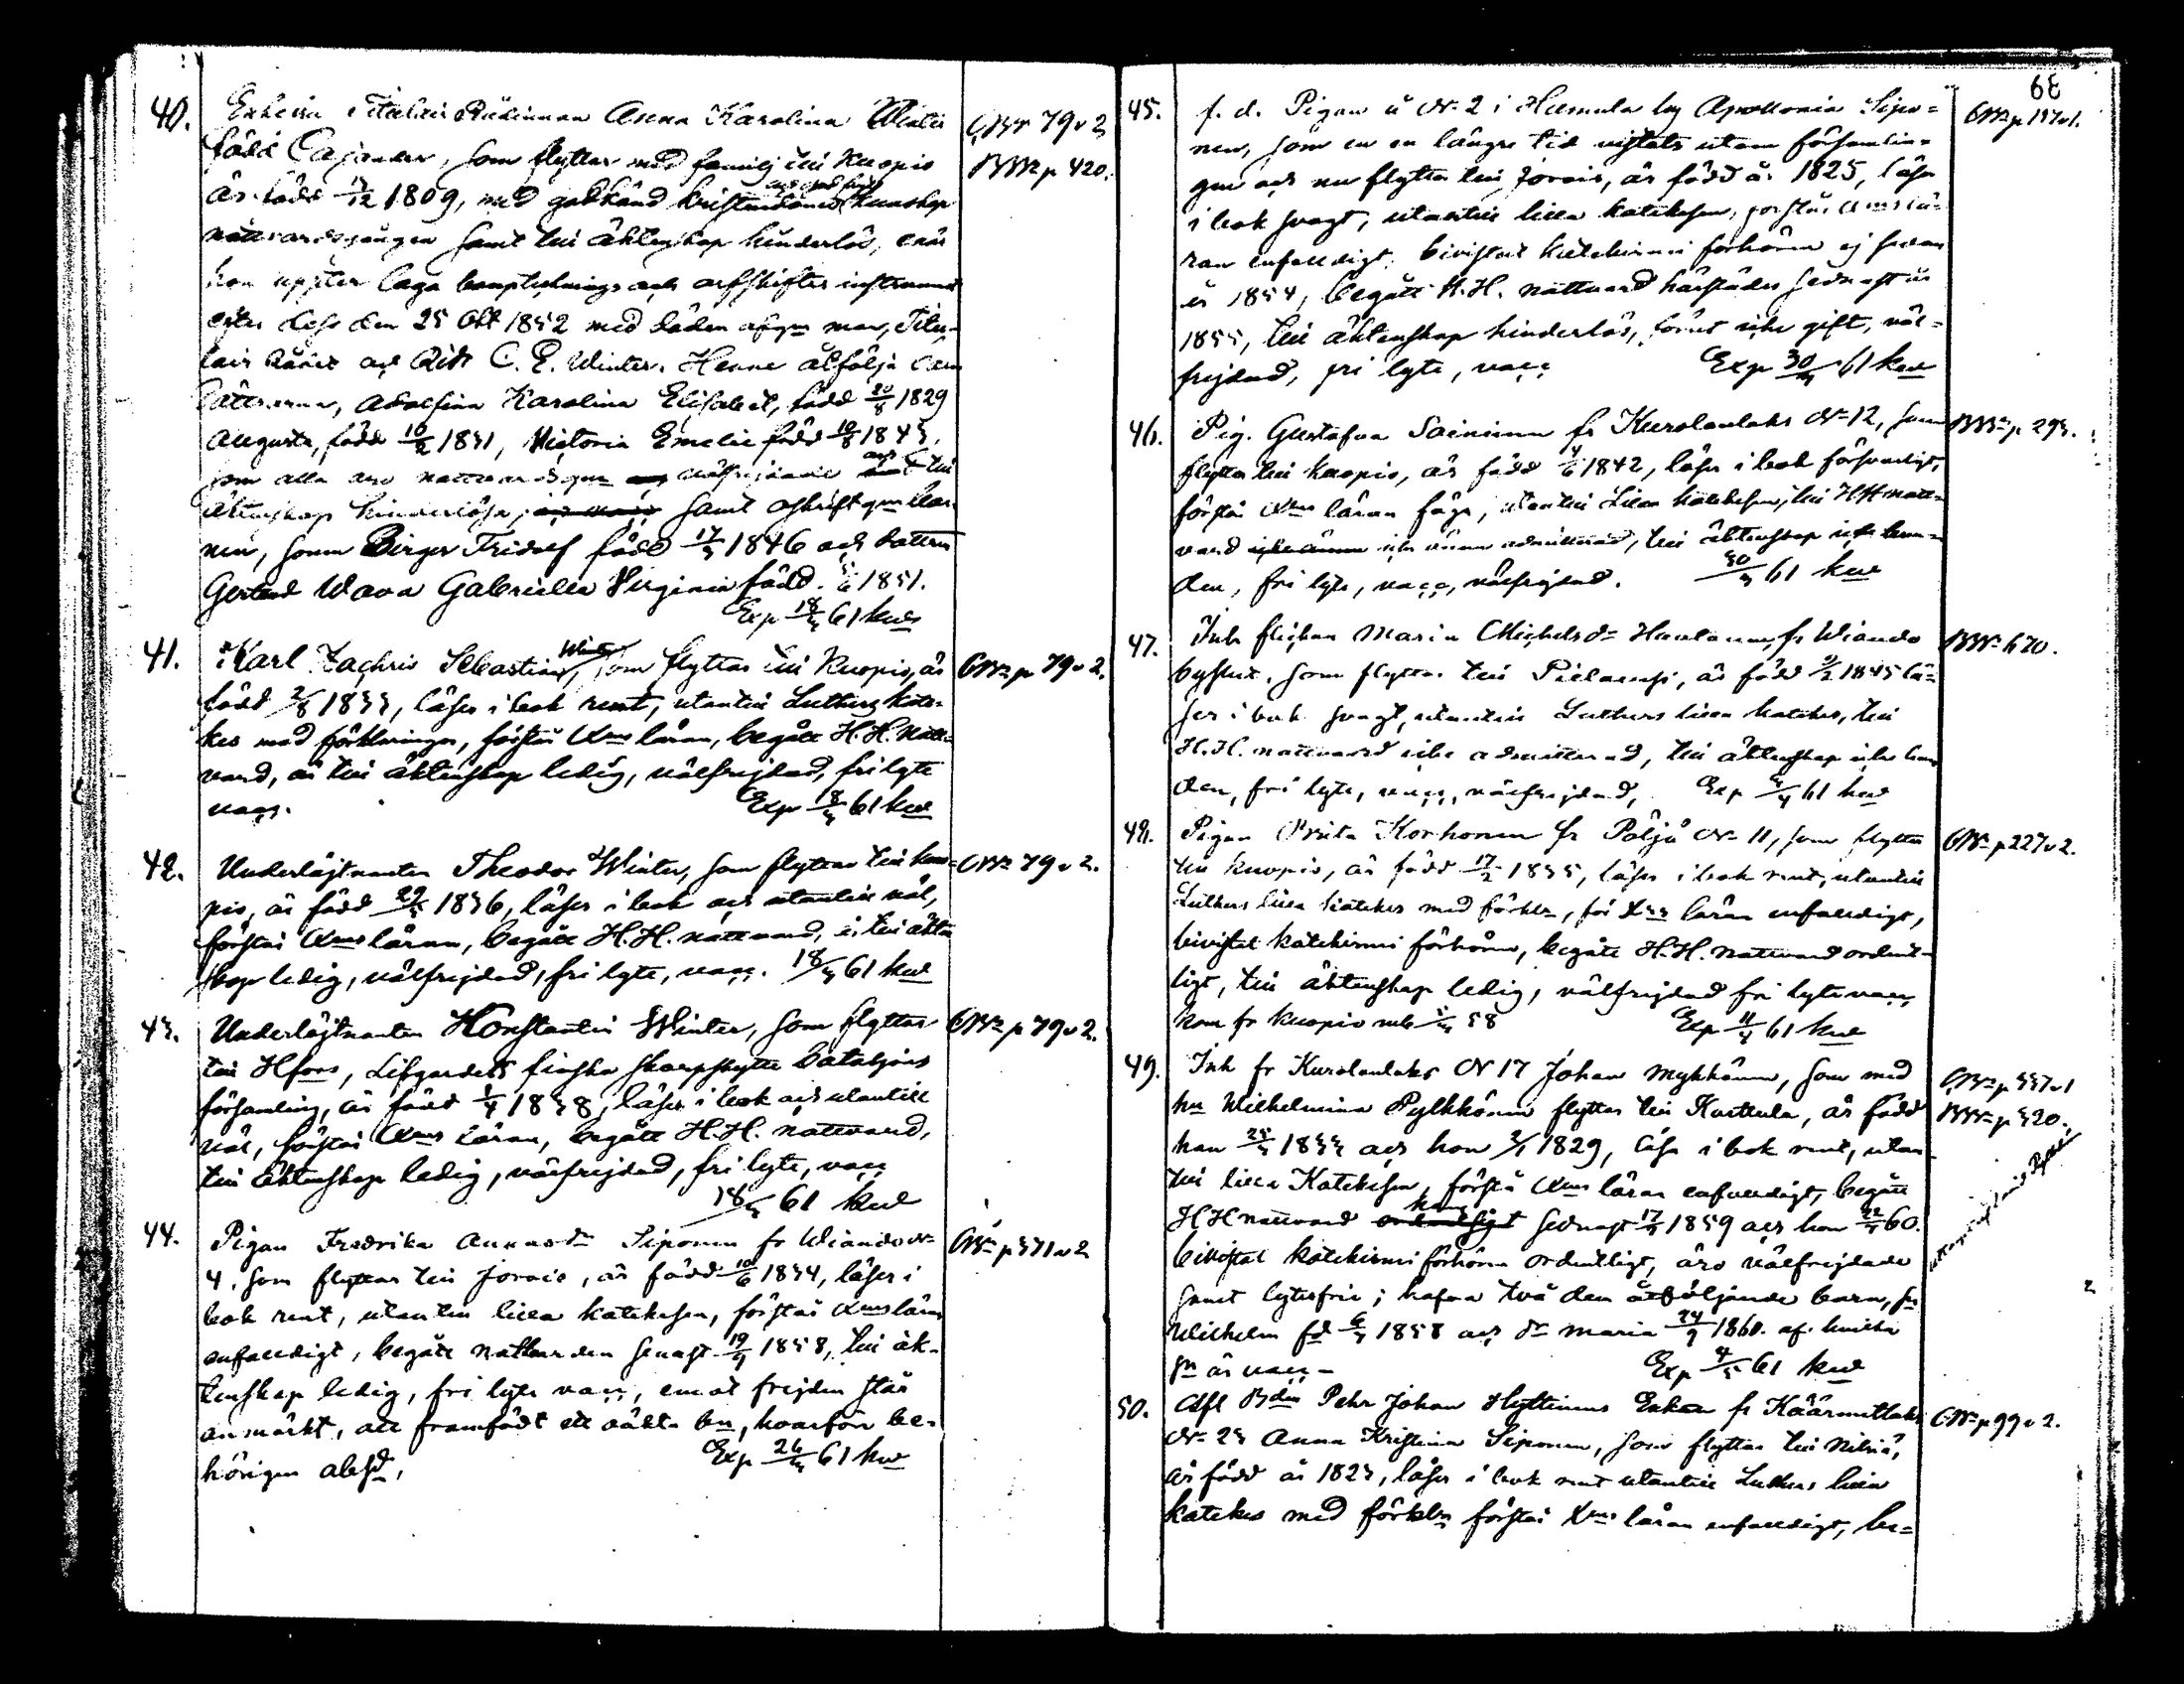 68
40. Enkefru Titulair Rådinnan Anna Karolina Winter
född Cajander, som flyttar med familj till Kuopio
är född 13/12 1809, med godkänd kristendomskunskap
nattvardsgången samt till äktenskap hinderlös, enär
hon uppter laga bouptecknings och arfskiftes instrument
efter dess den 25 Okt 1852 med döden afgne man, Titu-
lair Rådet och Ridd C. E. Winter. Henne åtfölja
döttrarna, Adolfina Karolina Elisabet, född 20/8 1829
Augusta, född 10/2 1831, Victoria Emelie född 10/8 1843,
som alla äro och till
äktenskap hinderlösa, samt oskriftgne bar-
nen, sonen Birger Fridolf född 17/3 1846 och dottren
Gertrud Wava Gabriella Virginia född 5/6 1851.
Exp 18/3 61 kwd
CBn 79 v 2
BBn p 420.
41. Karl Zachris Sebastian Winter, som flyttar till Kuopio, är
född 2/8 1833, läser i bok rent, utantill Luthers kate-
kes med förklaringen, förstår Xnns läran, begått H.H. natt-
vard, är till äktenskap ledig, välfrejdad, fri lyte
vacc. Exp 18/3 61 kwd
CBn p 79 v 2.
42. Underlöjtnanten Theodor Winter, som flyttar till Kuo-
pio, är född 29/3 1836, läser i bok och utantill väl,
förstår Xnns läran, begått H.H. nattvard, är till äkten
skap ledig, välfrejdad, fri lyte, vacc. 18/3 61 kwd
CBn 79 v 2.
43. Underlöjtnanten Konstantin Winter, som flyttar
till Hfors, Lifgardets finska skarpskytte bataljons
församling, är född 1/4 1838, läser i bok och utantill
väl, förstår Xnns läran, begått H.H. nattvard,
till äktenskap ledig, välfrejdad, fri lyte, vacc
18/3 61 kwd
CBn p 79 v 2.
44. Pigan Fredrika Annasdr Siponen fr Wiando No
4, som flyttar till Jorois, är född 10/6 1834, läser i
bok rent, utantill lilla katekesen, förstår Xnns läran
enfaldigt, begått nattvarden senast 19/9 1858, till äk-
tenskap ledig, fri lyte vacc, emot frejden står
anmärkt, att framfödt ett oäkta bn, hvarför be-
hörigen abesd, Exp 26/3 61 kwd
CBn p 371 v 2
45. f. d. Pigan å No 2 i Hamula by Apollonia Sipo-
nen, som en en längre tid vistats utom församlin-
gen och nu flyttar till Jorois, är född år 1825, läser
i bok svagt, utantill lilla katekesen, förstår Xnns lä-
ran enfaldigt, bivistat katekismi förhören ej sedan
år 1854, begått H.H. nattvard härstädes sednast år
1855, till äktenskap hinderlös, förut icke gift, väl-
frejdad, fri lyte, vacc Exp 30/3 61 kwd
CBn p 197 v 1.
46. Pig. Gustafva Saininen fr Kurolanlaks No 12, som
flyttar till Kuopio, är född 4/6 1842, läser i bok försvarligt,
förstår Xnns läran föga, utantill Lilla katekesen, till HH natt-
vard icke ännu admitterad, till äktenskap icke bun-
den, fri lyte, vacc, välfrejdad. 30/3 61 kwd
BBn p 293.
47. Inh flickan Maria Michelsdr Haulanen, fr Wiando
byskut. som flyttar till Pielavesi, är född 2/2 1845 lä-
ser i bok svagt, utantill Luthers lilla katekes, till
H.H. nattvard icke admitterad, till äktenskap icke bun
den, fri lyte, vacc, välfrejdad, Exp 3/4 61 kwd
BBn 620.
48. Pigan Brita Korhonen fr Pöljä No 11, som flyttar
till Kuopio, är född 17/2 1835, läser i bok rent, utantill
Luthers lilla katekes med förkln, för Xnns läran enfaldigt,
bivistat katekismi förhören, begått H.H. nattvard ordent-
ligt, till äktenskap ledig, välfrejdad fri lyte vacc,
kom fr Kuopio 58 Exp 11/4 61 kwd
CBn p 227 v 2.
49. Inh fr Kurolanlaks N 17 Johan Mykkänen, som med
hu Wilhelmina Pylkkönen flyttar till Karttula, är född
han 25/3 1833 och hon 2/1 1829, läsa i bok rent, utan-
till lilla Katekesen, förstå Xnns läran enfaldigt, begått
H.H nattvard han sednast 17/7 1859 och hon 22/7 60.
bivistat katekismi förhören ordentligt, äro välfrejdade
samt lytesfrie; hafva två dem åtföljande barn, sn
Wilhelm fd 6/3 1858 och dr Maria 24/9 1860. af hvilka
sn är vacc - Exp 4/5 61 kwd
CBn p 337 v 1
BBn p 320.
50. Afl Bdn Pehr Johan Hyttinens Enka fr Käärmetlaks
No 23 Anna Kristina Siponen, som flyttar till Nilsiä,
är född år 1823, läser i bok rent utantill Luthers lilla
katekes med förkln förstår Xnns läran enfaldigt, be-
CBn p 99 v 2.